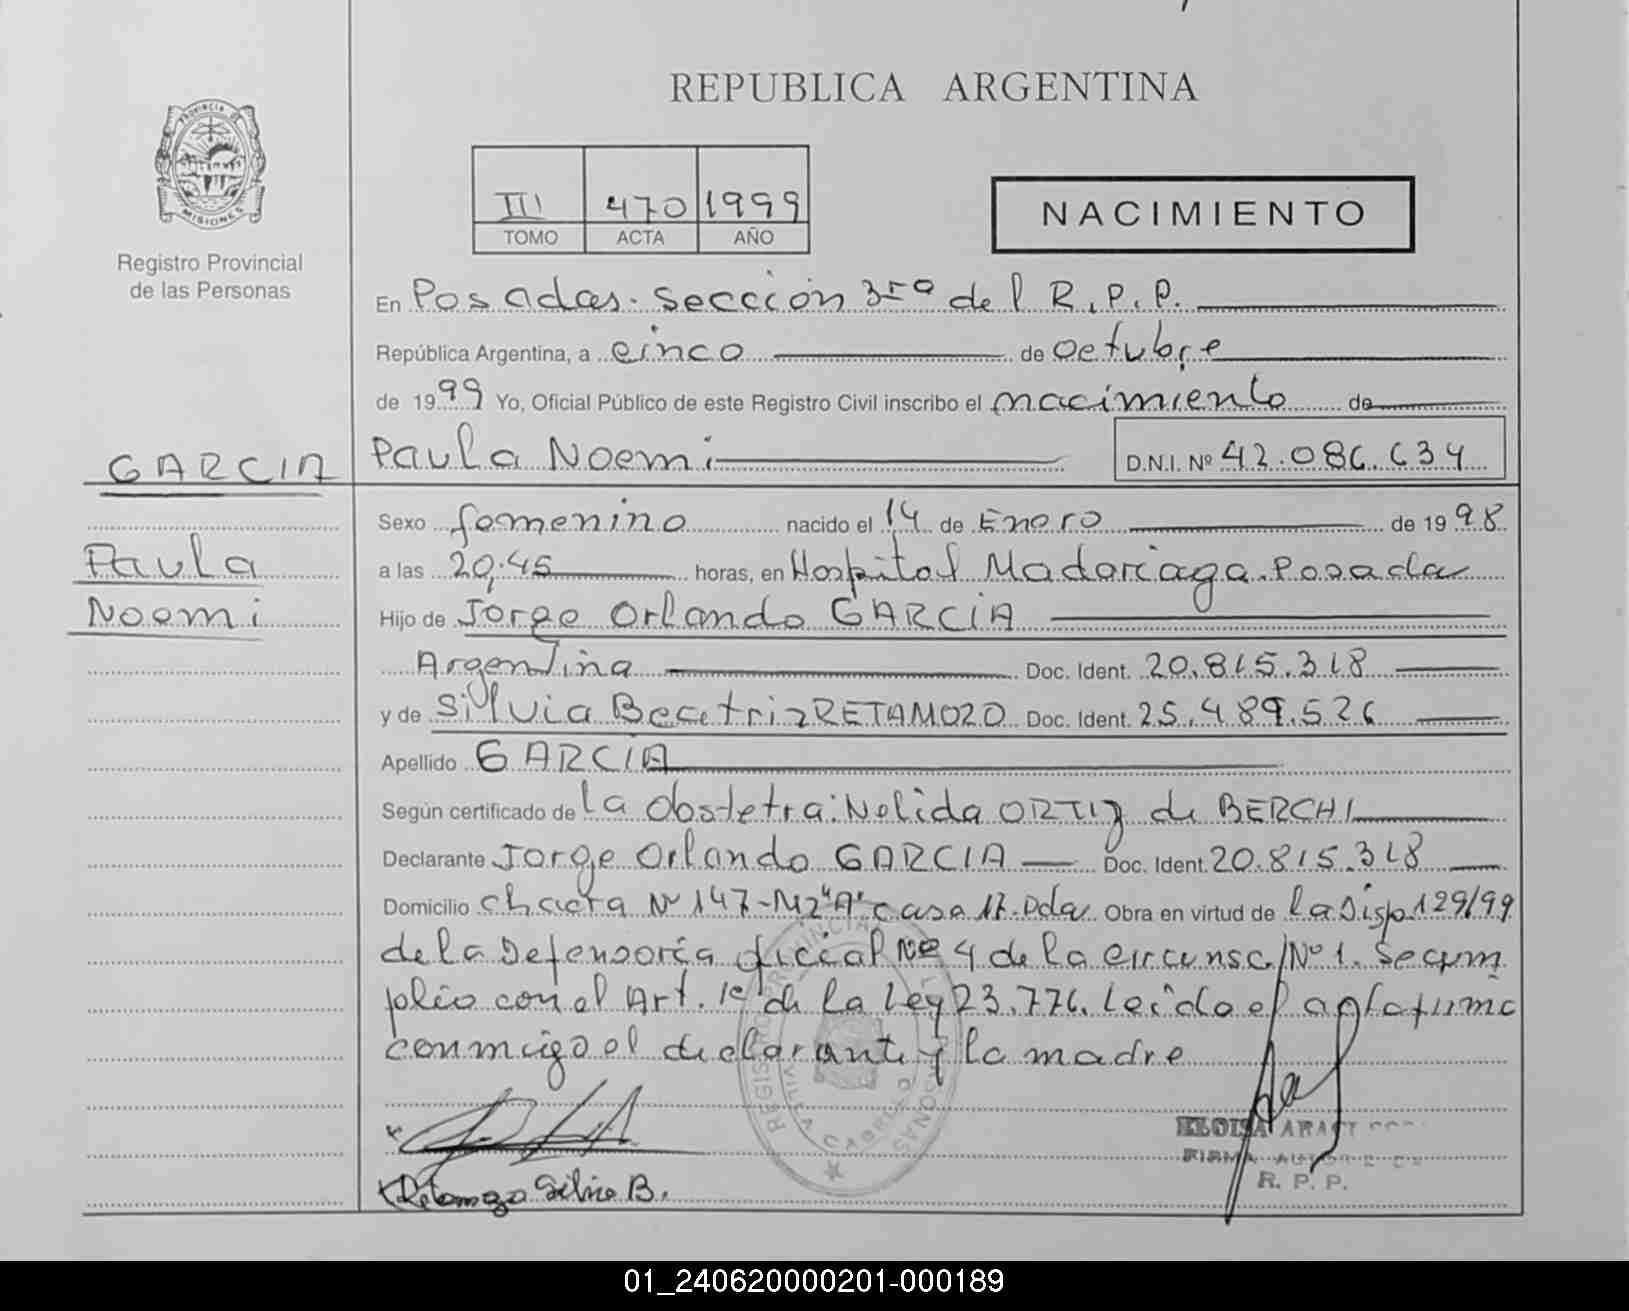 REPUBLICA ARGENTINA
PROVINCIA DE
MISIONES
Registro Provincial
de las Personas
III 470 1999
TOMO ACTA AÑO
NACIMIENTO
En Posadas. Sección 3ra del R.P.P.
República Argentina, a cinco de octubre
de 1999 Yo, Oficial Público de este Registro Civil inscribo el nacimiento de
GARCIA
Paula Noemi D.N.I. Nº 42.086.634
Sexo femenino nacido el 14 de Enero de 1998
Paula
a las 20,45 horas, en Hospital Madariaga. Posadas
Noemi
Hijo de Jorge Orlando GARCIA
Argentina Doc. Ident. 20.815.318
y de Silvia Beatriz RETAMOZO Doc. Ident. 25.489.526
Apellido GARCIA
Según certificado de la Obstetra: Nelida ORTIZ de BERCHI
Declarante Jorge Orlando GARCIA Doc. Ident. 20.815.318
Domicilio chacra Nº 147-Mz "A" casa 17. Pdas Obra en virtud de la Disp 129/99
de la Defensoría oficial Nº 4 de la circunsc. Nº 1. Se cum
plio con el Art. 1º de la Ley 23.776. Leido el acta firma
conmigo el declarante y la madre
REGISTRO PROVINCIAL DE LAS PERSONAS
VILLA CABELLO
ELOISA
FIRMA
R. P. P.
Retamozo Silvia B.
01_240620000201-000189